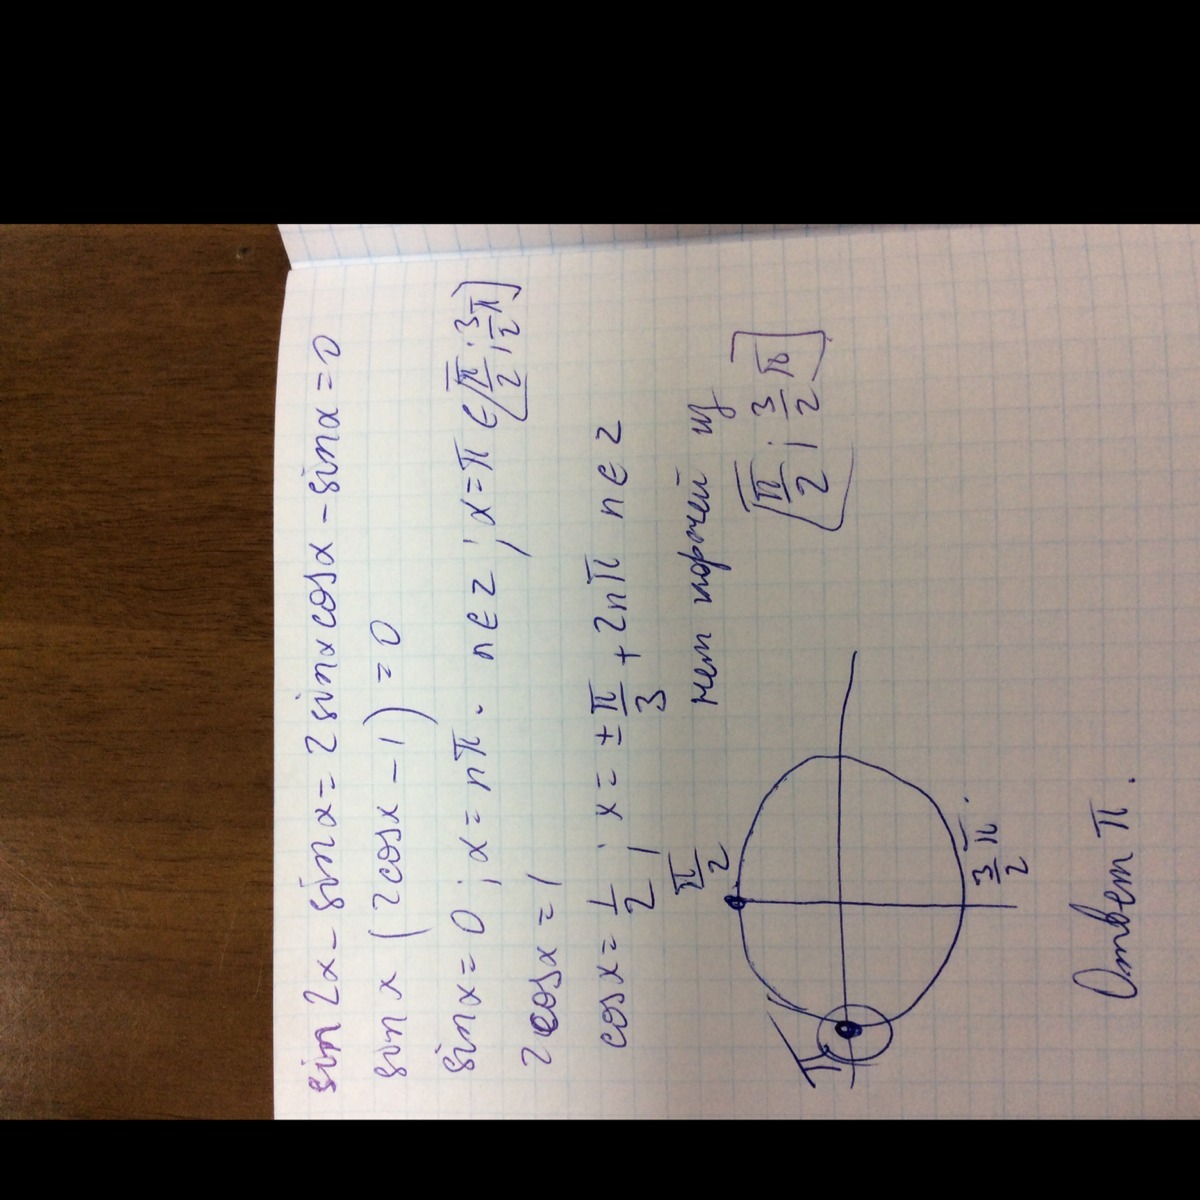 sin 2x - sin x = 2 sin x cos x - sin x = 0
sin x (2 cos x - 1) = 0
sin x = 0 ; x = nπ. n ∈ z ; x = π ∈ [π/2 ; 3/2 π]
2 cos x = 1
cos x = 1/2 ; x = ± π/3 + 2nπ n ∈ z
нет корней из
[π/2 ; 3/2 π]
π/2
π
3/2 π.
Ответ π.